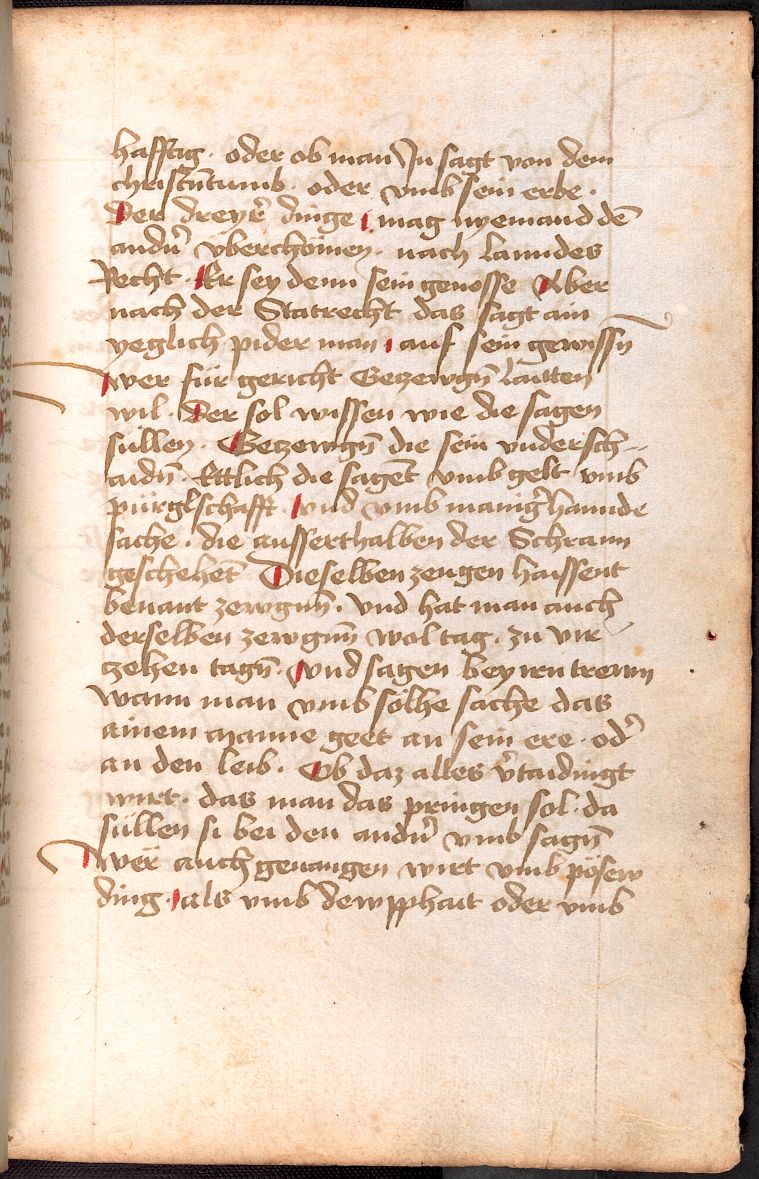 hafftig · oder ob man Jn sagt von dem
christentumb · oder vmb sein erbe ·
Der dreyer̄ dinge / mag nyemand dē
andn̄ vberchömen · nach lanndes
Recht · Er sey denn sein genosse Aber
nach der Statrecht das sagt ain
yeglich pider man / auf sein gewissn̄
wer für gericht Getzewgn̄ laitten
wil · Der sol wissen wie die sagen
süllen · Getzewgn̄ die sein vndersch-
aidn̄ · Ettlich die sagēt vmb gelt vmb
pürglschafft · vnd vmb manigˀ hannde
sache · die ausserthalben der Schrann
geschehēt Dieselben zeugen haissent
benant zewgnn̄ · vnd hat man auch
derselben zewgnn̄ wol tag · zu vir
czehen tagn̄ · vnd sagen bey irn trewn
wann man vmb sölhe sache das
ainem manne geet an sein ere · odˀ
an den leib · Ob daz alles vˀtaidingt
wirt · das man das pringen sol · da
süllen si bei den andn̄ vmb sagn̄
wer auch geuangen wirt vmb pösew
ding · als vmb dewpphait oder vmb